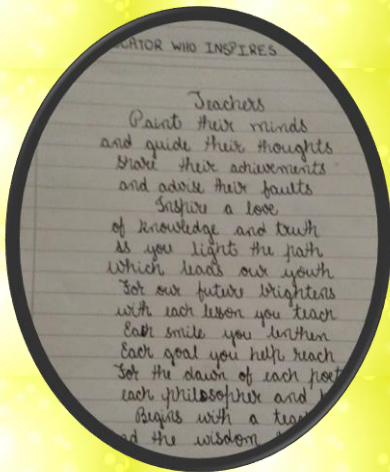 CATOR WHO INSPIRES
Teachers
Paint their minds
and guide their thoughts
Share their achievements
and advise their faults
Inspire a love
of knowledge and truth
As you light the path
which leads our youth
For our future brightens
with each lesson you teach
Each smile you lenthen
Each goal you help reach
For the dawn of each poet
each philosopher and
Begins with a teac
the wisdom